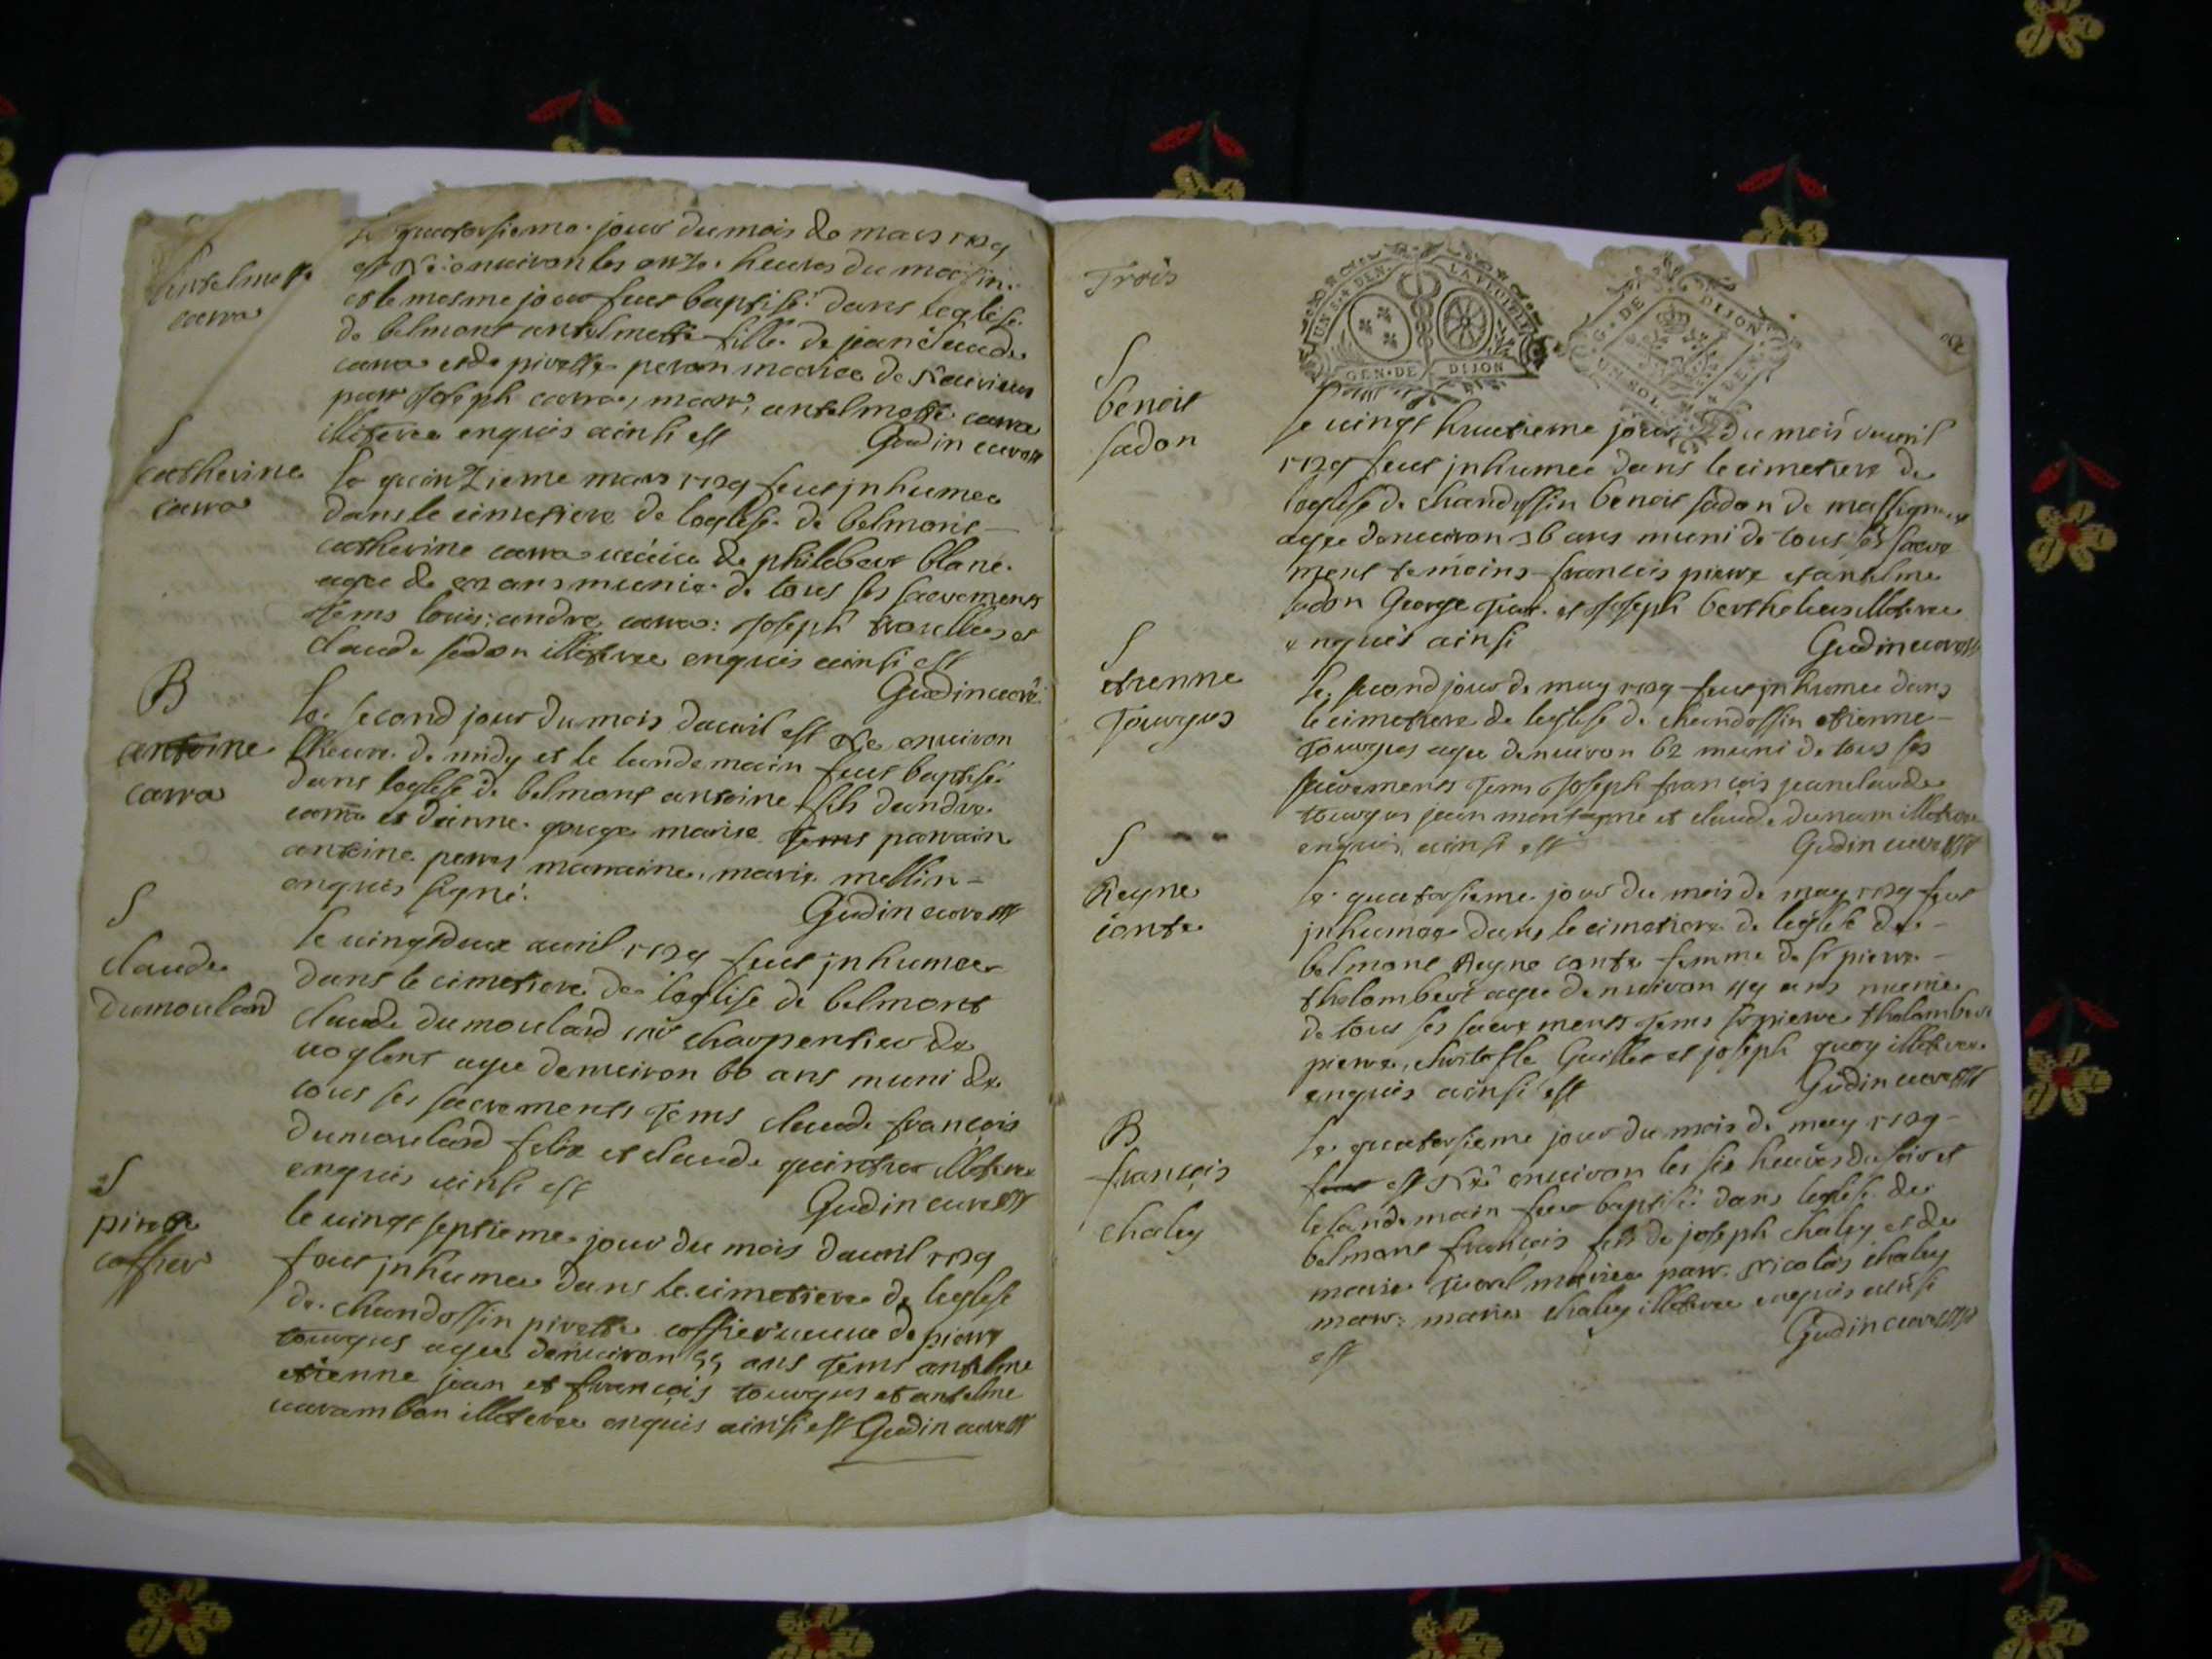 antelmette
carra
quatorsieme jour du mois de mars 1729
est Né enuiron les onze heures du matin
et le mesme jour fut baptisé dans leglise
de belmont antelmette fille de jean claude
carra et de pivette peron mariee de
parr joseph carra, marr, antelmette carra
illiteree enquis ainsi est Gudin curé
S
catherine
carra
le quinzieme mars 1729 feut jnhumee
dans le cimetiere de leglise de belmont
catherine carra de philibert blanc
agee de ans munie de tous ses sacrements
tems louis: andre carra: joseph et
claude sadon illiteree enquis ainsi est
Gudin curé
B
antoine
carra
le second jour du mois dauril est Né enuiron
lheure de midy et le landemain feut baptisé
dans leglise de belmont antoine fils dandre
carra et danne gouge mariee tems parrain
antoine marraine, marie mellin
enquis signé.
Gudin curé
S
claude
dumoulard
le uingtdeux auril 1729 feut jnhumee
dans le cimetiere de leglise de belmont
claude dumoulard charpentier de
uoglent agee denuiron 60 ans muni de
tous ses sacrements tems claude françois
dumoulard felix et claude illiteree
enquis ainsi est
Gudin curé
S
pivette
coffier
le uingt septieme jour du mois dauril 1729
feut jnhumee dans le cimetiere de leglise
de chandossin pivette coffier ueuue de pierre
tourgus agee denuiron 55 ans tems antelme
etienne jean et françois tourgus et antelme
uarambon illiteree enquis ainsi est Gudin curé
Trois
UN S. 4 DEN. LA FEUILLE
GEN. DE DIJON
G. DE DIJON
UN SOL DE
S
benoit
sadon
le uingt huitieme jour du mois dauril
1729 feut jnhumee dans le cimetiere de
leglise de chandossin benoit sadon de massignieu
agee denuiron 36 ans muni de tous ses sacre
ment temoins francois pierre et antelme
sadon George et joseph berthelier illiteree
enquis ainsi Gudin curé
S
etienne
Tourgus
le second jour de may 1729 feut jnhumee dans
le cimetiere de leglise de chandossin etienne
Tourgus agee denuiron 62 muni de tous ses
sacrements tems joseph françois jeanclaude
tourgus jean montagne et claude dunam illiteree
enquis ainsi est Gudin curé
S
Reyne
conte
le quatorsieme jour du mois de may 1729 feut
jnhumee dans le cimetiere de leglise de
belmont Reyne conte femme de sr pierre
thalambert agee denuiron ans munie
de tous ses sacrements tems sr pierre thalambert
pierre, christofle Guillet et joseph illiteree
enquis ainsi est Gudin curé
B
françois
chaley
le quatorsieme jour du mois de may 1729
feut est Né enuiron les six heures du soir et
le landemain feut baptisé dans leglise de
belmont françois fils de joseph chaley et de
marie mariee parr. Nicolas chaley
marr: marie chaley illiteree enquis ainsi
est Gudin curé